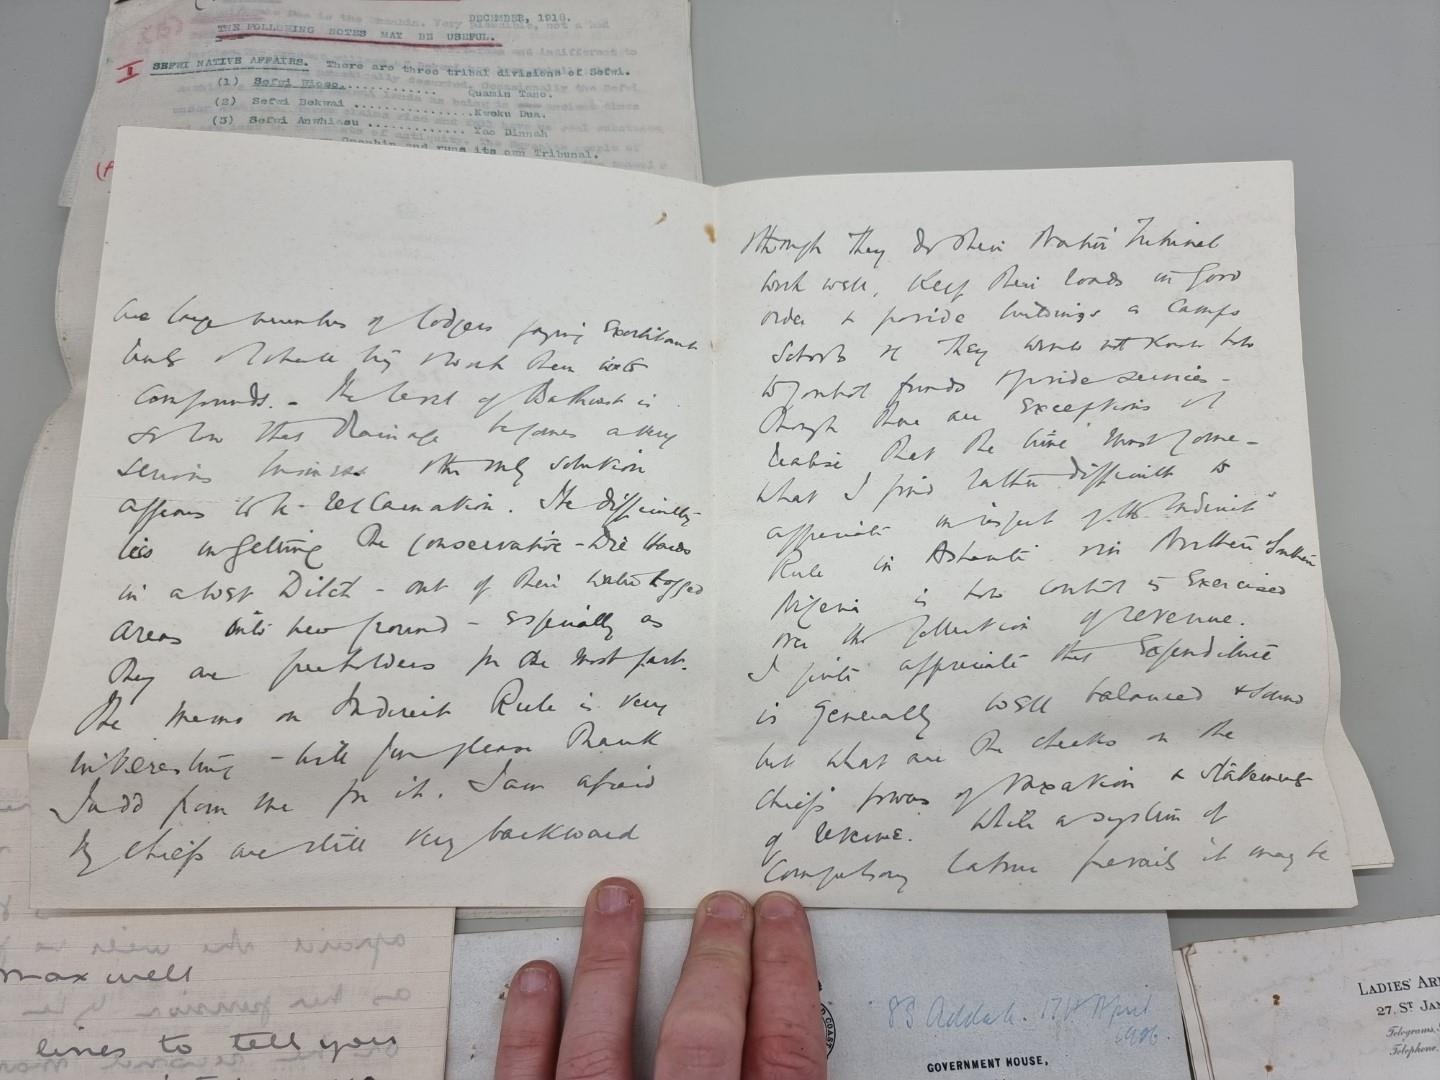 DECEMBER, 1918.
THE FOLLOWING NOTES MAY BE USEFUL.
I SEFWI NATIVE AFFAIRS. There are three tribal divisions of Sefwi.
(1) Sefwi Wioso............ Quamin Tano.
(2) Sefwi Bekwai ............... Kwoku Dua.
(3) Sefwi Anwhiasu ............. Yao Dinnah
and runs its own Tribunal.
are large numbers of lodgers paying Exorbitant
them into
Compounds. - The level of Bathurst is
so low that Drainage becomes a very
serious business & the only solution
appears to be reclamation. The difficulty
lies in getting the conservative - Die Hards
in a last Ditch - out of their waterlogged
areas into new ground - Especially as
they are freeholders for the most part.
The memo on Indirect Rule is very
interesting - will you please thank
Judd from me for it. I am afraid
my chiefs are still very backward
& though they do their Native Tribunal
work well, keep their roads in good
order & provide buildings & Camps
Schools &c they would not know how
to control funds & provide services -
though there are exceptions & I
realise that the time must come -
What I find rather difficult to
appreciate in respect of the "Indirect"
Rule in Ashanti & in Northern & Southern
Nigeria is how control is Exercised
over the collection of revenue.
I quite appreciate that Expenditure
is generally well balanced & sound
but what are the checks on the
Chiefs powers of taxation & statements
of revenue. While a system of
Compulsory labour prevails it may be
maxwell
lines to tell you
83 Addah. 17th April
GOVERNMENT HOUSE,
LADIES' AR
27, ST JA
Telegrams,
Telephone.